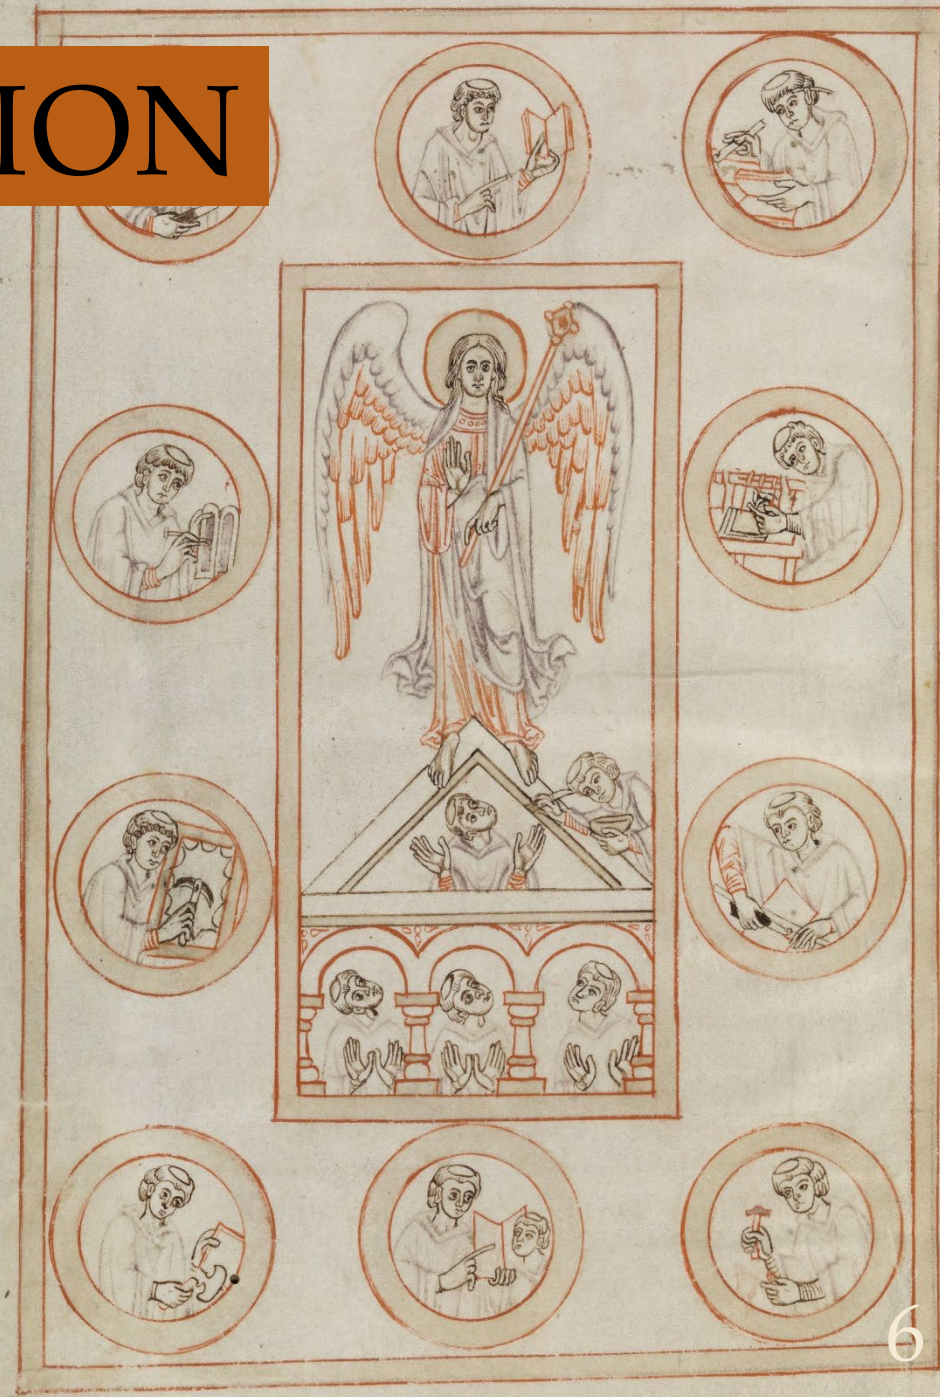 ION
6